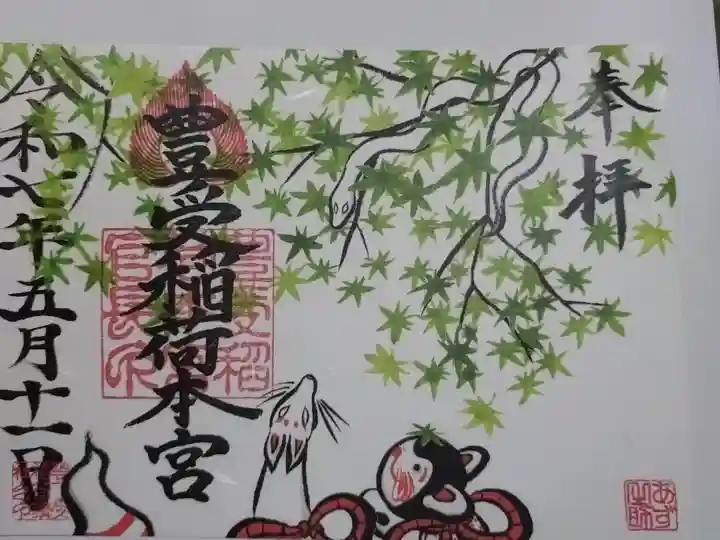 奉拝
豊受稲荷本宮
令和七年五月十一日
あず
之助